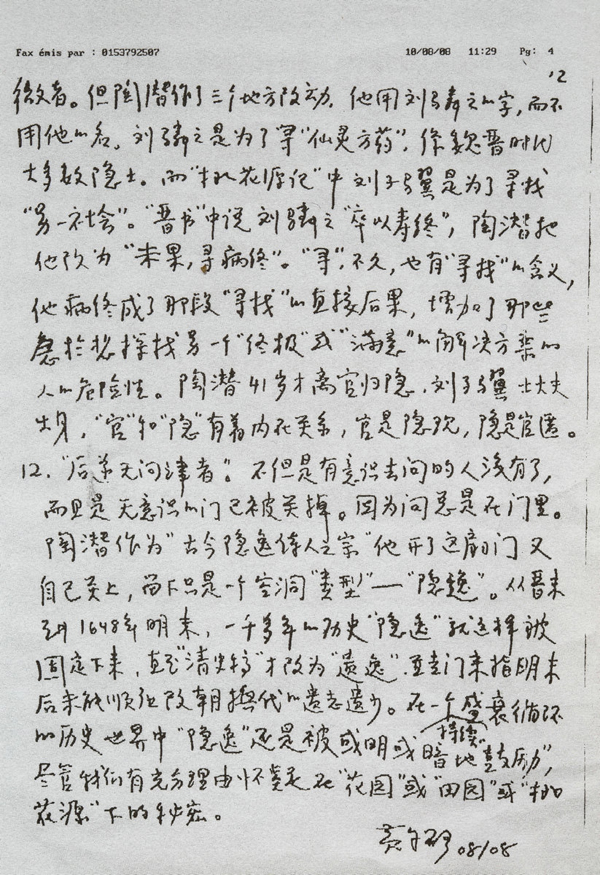 Fax émis par : 0153792507 10/08/08 11:29 Pg: 4
12
徵者。但陶潜作了三个地方改动,他用刘驎之的字,而不
用他的名。刘驎之是为了寻“仙灵方药”,像魏晋时代
大多数隐士。而“桃花源记”中刘子骥是为了寻找
“另一社会”。“晋书”中说刘驎之“卒以寿终”,陶潜把
他改为“未果,寻病终”。“寻”,不久,也有“寻找”的含义,
他病终成了那段“寻找”的直接后果,增加了那些
急于想探找另一个“终极”或“满意”的解决方案的
人的危险性。陶潜41岁才离官归隐,刘子骥士大夫
出身,“官”和“隐”有着内在关系,官是隐现,隐是官匿。
12.“后遂无问津者”。不但是有意识去问的人没有了,
而且是无意识的门已被关掉。因为问总是在门里。
陶潜作为“古今隐逸诗人之宗”他开了这扇门又
自己关上,留下只是一个空洞“类型”—“隐逸”。从晋末
到1648年明末,一千多年的历史“隐逸”就这样被
固定下来,直至“清史稿”才改为“遗逸”,并专门来指明末
后未能顺从改朝换代的遗老遗少。在一个盛衰循环
的历史世界中“隐逸”还是被或明或暗地持续“鼓励”,
尽管我们有充分理由怀疑在“花园”或“田园”或“桃
花源”下的秘密。
08/08